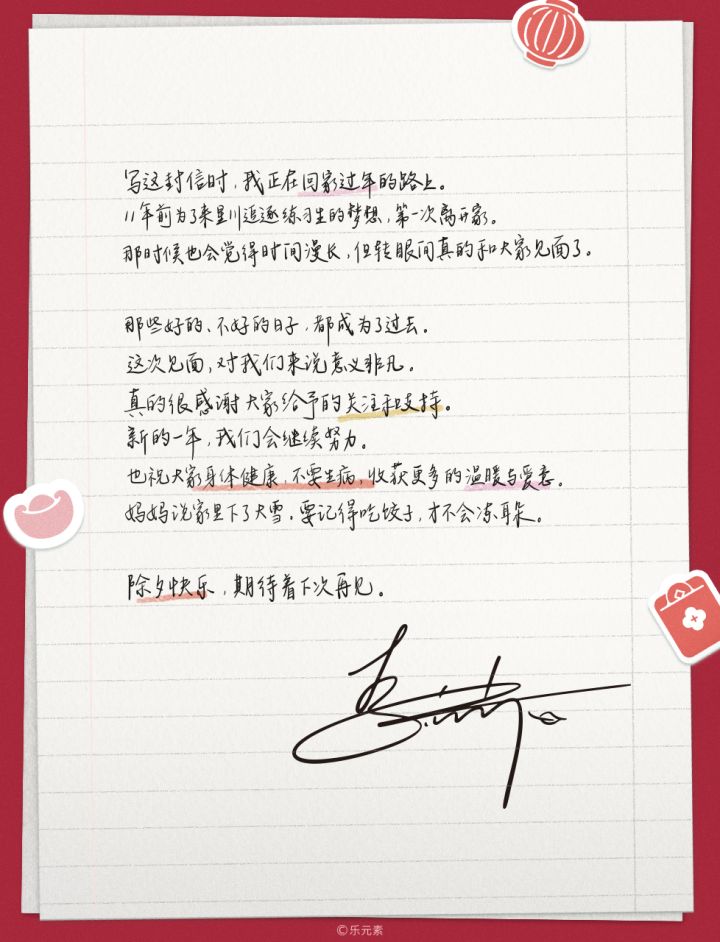 写这封信时，我正在回家过年的路上。
11年前为了来星川追逐练习生的梦想，第一次离开家。
那时候也会觉得时间漫长，但转眼间真的和大家见面了。
那些好的、不好的日子，都成为了过去。
这次见面，对我们来说意义非凡。
真的很感谢大家给予的关注和支持。
新的一年，我们会继续努力。
也祝大家身体健康，不要生病，收获更多的温暖与爱意。
妈妈说家里下了大雪，要记得吃饺子，才不会冻耳朵。
除夕快乐，期待着下次再见。
©乐元素